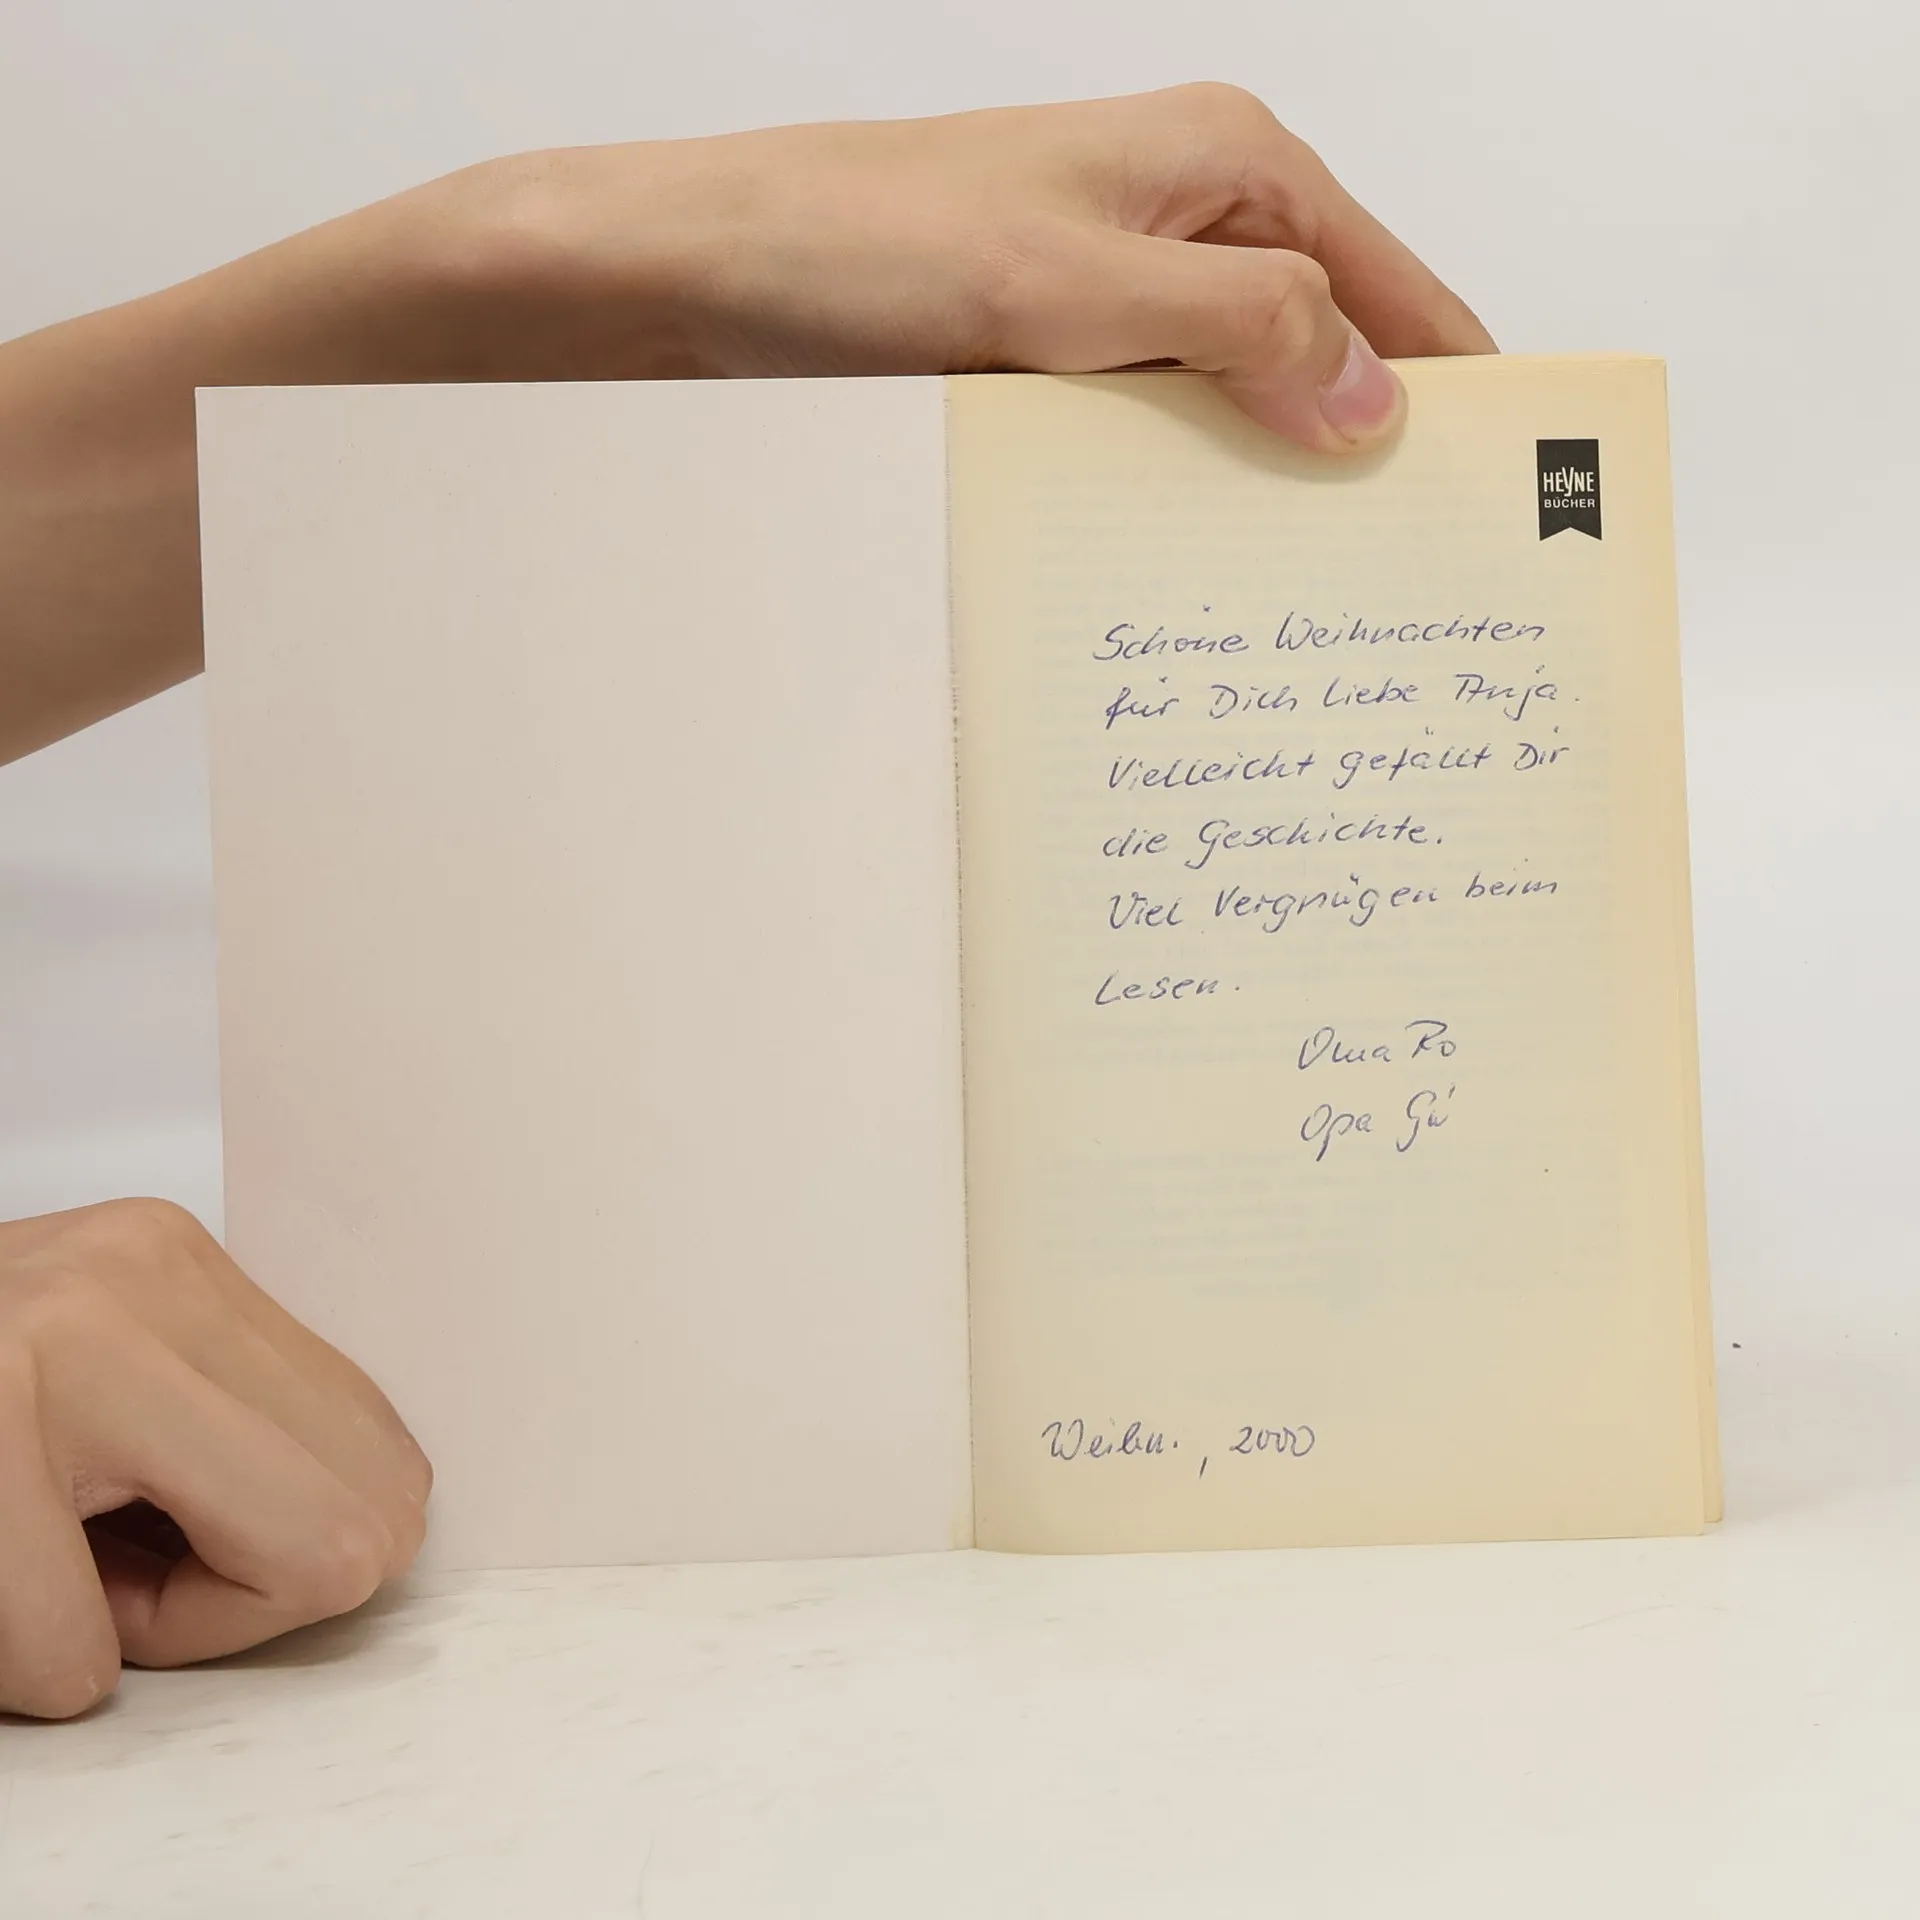 HEYNE
BÜCHER
Schöne Weihnachten
für Dich Liebe Anja.
Vielleicht gefällt Dir
die Geschichte.
Viel Vergnügen beim
Lesen.
Oma Ro
Opa Gü
Weihn., 2000